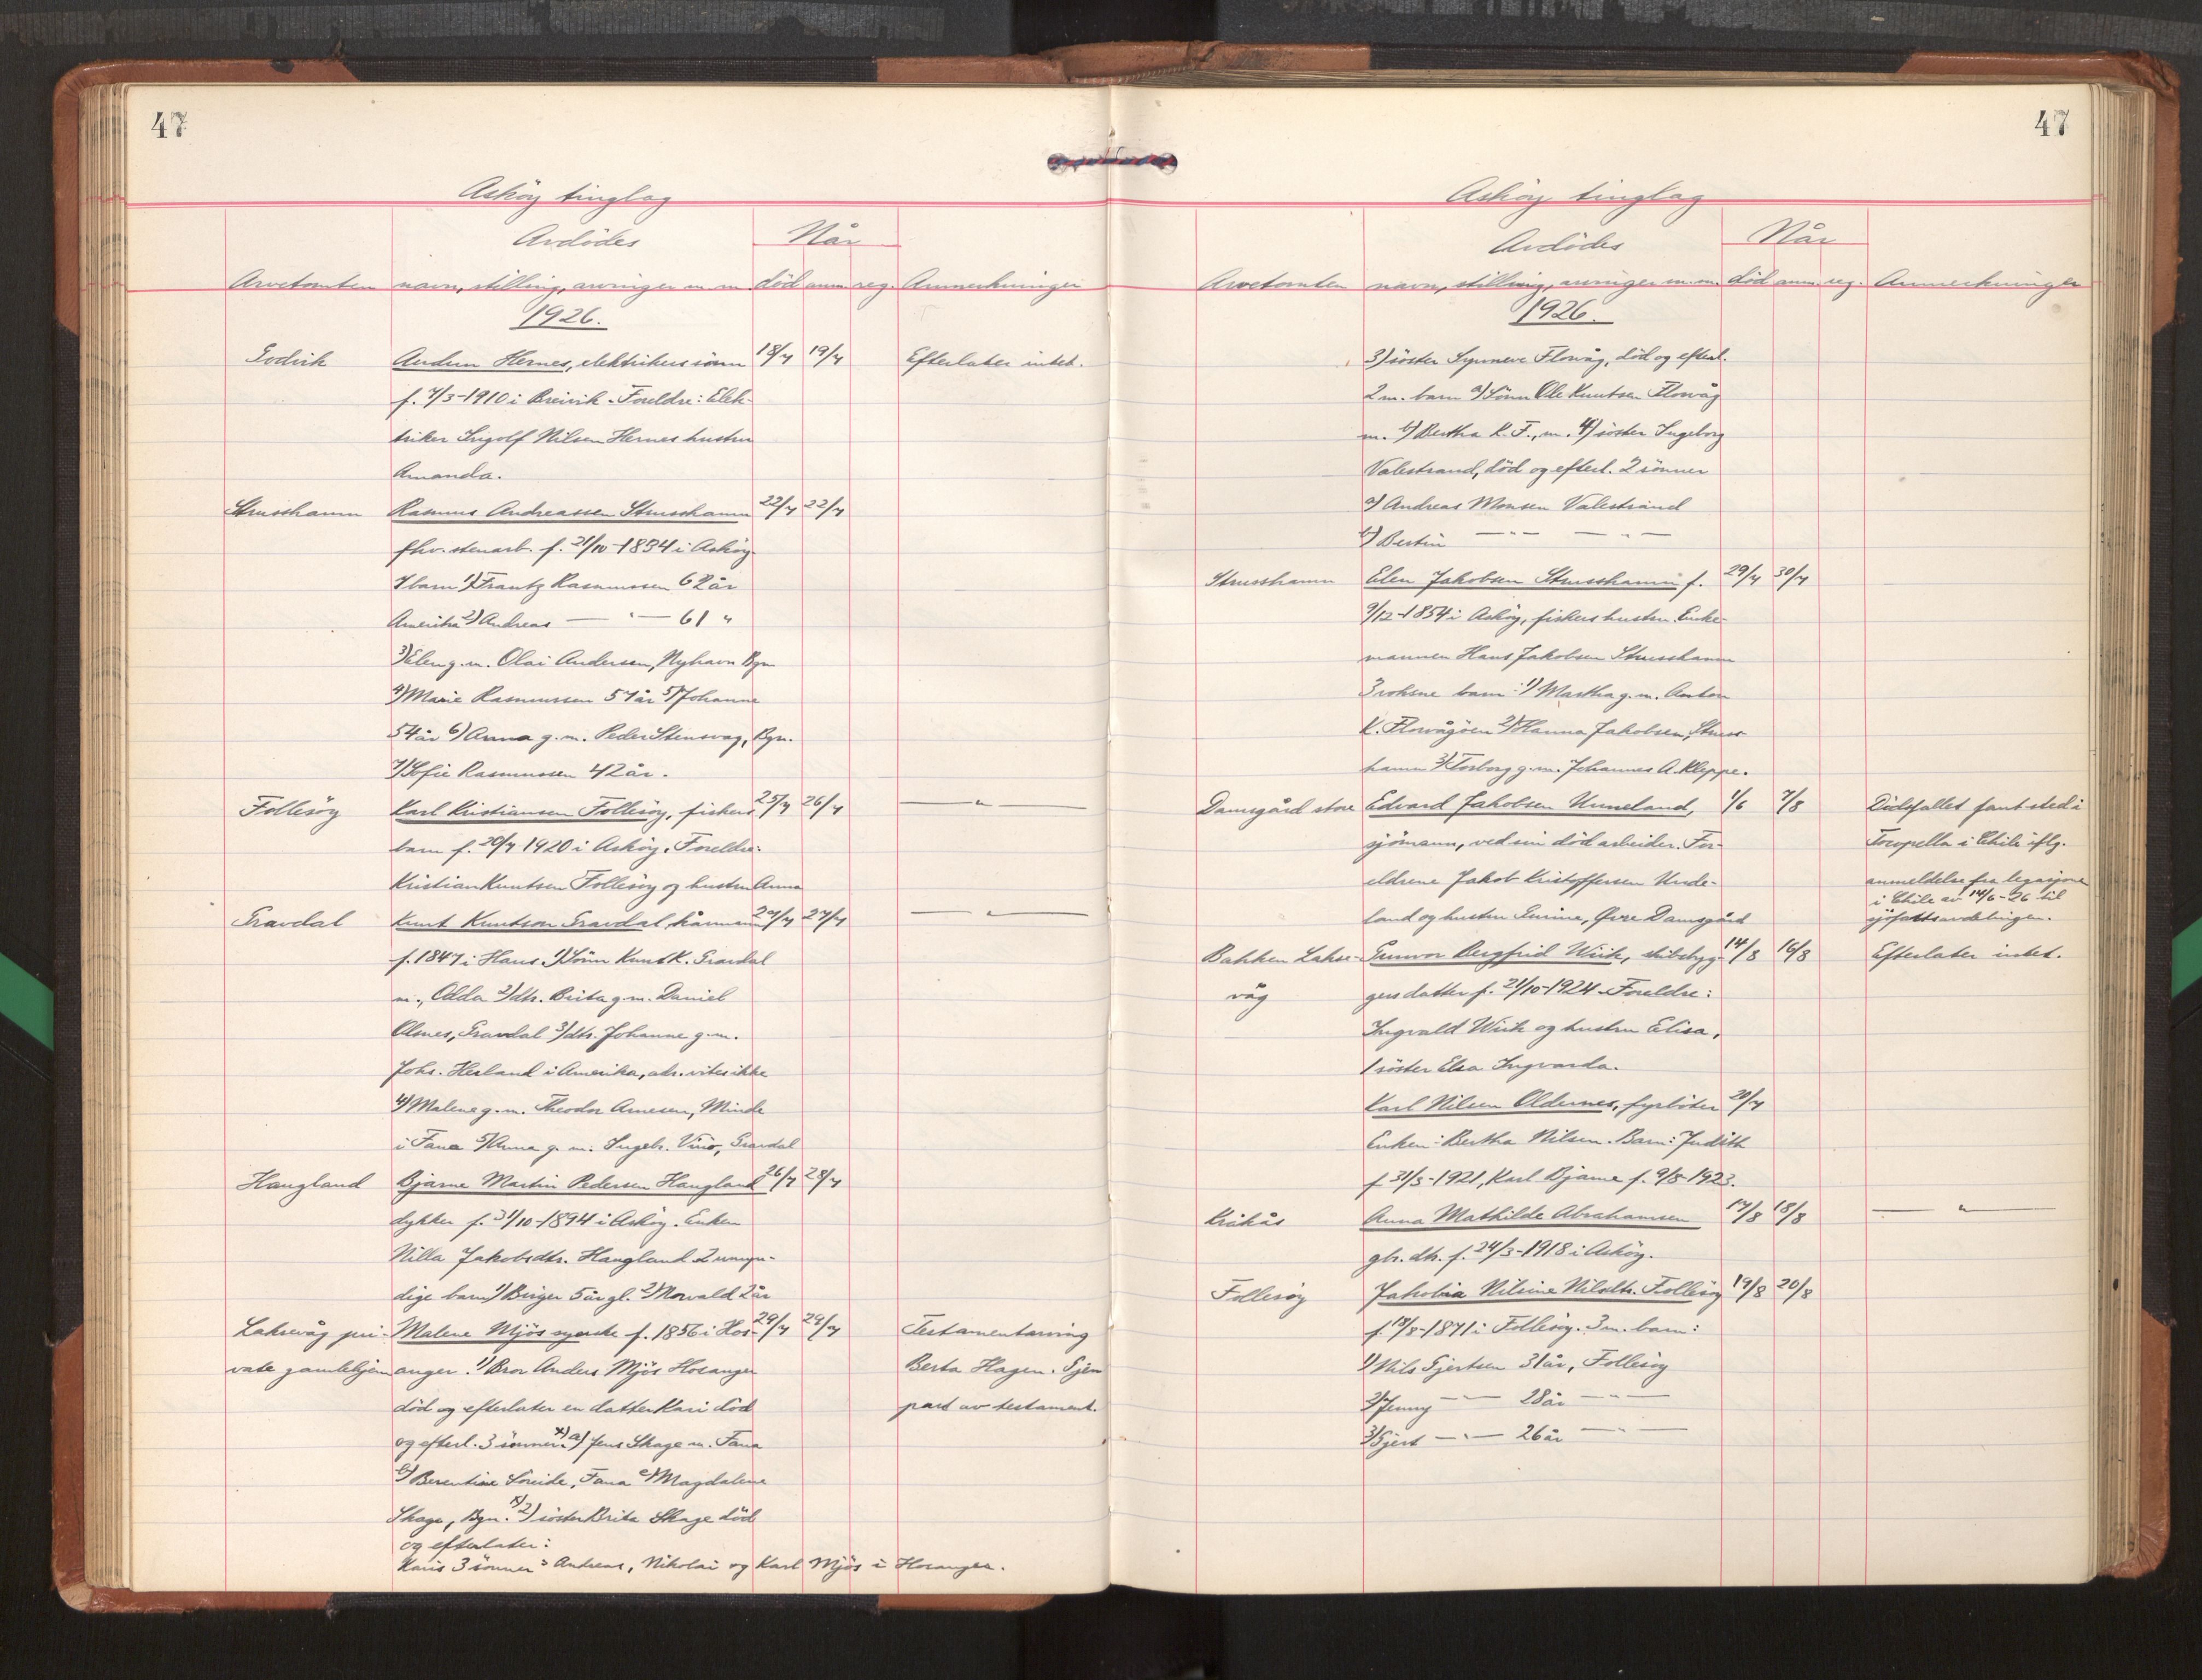 47
Askøy tinglag
Avdødes
Når
Arvetomten navn, stilling, arvinger m. m. død anm. reg. Anmerkninger
1926.
Audun Hernes, elektrikers sønn 18/7 19/7 Efterlater intet.
f. 7/3-1910 i Breivik. Foreldre: Elek-
triker Ingolf Nilsen Hernes hustru
Amanda.
Strusshamn Rasmus Andreassen Strusshamn 22/7 22/7
fhv. stenarb. f. 21/10-1834 i Askøy.
7 barn 1) Frantz Rasmussen 62 år
Amerika 2) Andreas — " — 61 "
3) Elen g. m. Olai Andersen, Nyhavn Bgn
4) Marie Rasmussen 57 år 5) Johanne
54 år 6) Anna g. m. Peder Stensvag, Bgn.
7) Sofie Rasmussen 42 år.
Follesøy Karl Kristiansen Follesøy, fiskers 25/7 26/7 — " —
barn f. 20/7 1920 i Askøy. Foreldre:
Kristian Knutsen Follesøy og hustru Anna
Gravdal Knut Knutson Gravdal, kårmann 27/7 27/7 — " —
f. 1847 i Haus. 1) Sønn Knut K. Gravdal
m., Odda 2) dtr. Brita g. m. Daniel
Olsnes, Gravdal 3) dtr. Johanne g. m.
Johs. Hesland i Amerika, adr. vites ikke
4) Malene g. m. Theodor Arnesen, Minde
i Fana 5) Anna g. m. Ingebr. Gravdal
Haugland Bjarne Martin Pedersen Haugland 26/7 28/7
dykker f. 31/10-1894 i Askøy. Enken
Nilla Jakobsdtr. Haugland 2 umyn-
dige barn 1) Birger 5 år gl. 2) Norvald 2 år
Laksevåg pri- Malene Mjøs syerske f. 1856 i Hos- 29/7 29/7 Testamentarving
vate gamlehjem anger. 1) Bror Anders Mjøs Hosanger Berta Hagen. Gjen
død og efterlater en datter Kari død part av testament.
og efterl. 3 sønner x) a) Jens Skage m. Fana
b) Berentine Søreide, Fana c) Magdalene
Skage, Bgn. x) 2) søster Brita Skage død
og efterlater:
Karis 3 sønner: Andreas, Nikolai og Karl Mjøs i Hosanger.
47
Askøy tinglag
Avdødes
Når
Arvetomten navn, stilling, arvinger m. m. død anm. reg. Anmerkninger
1926.
3) søster Synneve Flovåg, død og efterl.
2 m. barn a) Sønn Ole Knutsen Flovåg
m. b) Bertha K. F., m. 4) søster Ingeborg
Valestrand, død og efterl. 2 sønner
a) Andreas Monsen Valestrand
b) Bertin — " — — " —
Strusshamn Elen Jakobsen Strusshamn f. 29/7 30/7
9/12-1854 i Askøy, fiskers hustru. Enke-
mannen Hans Jakobsen Strusshamn
3 voksne barn: 1) Martha g. m. Anton
K. Flovågøen 2) Hanna Jakobsen, Struss-
hamn 3) Torborg g. m. Johannes A. Kleppe.
Damsgård store Edvard Jakobsen Unneland, 1/6 7/8 Dødsfallet fant sted i
sjømann, ved sin død arbeider. For- Tocopella i Chile iflg.
eldrene Jakob Kristoffersen Unde- anmeldelse fra legasjonen
land og hustru Øvre Damsgård i Chile av 14/6-26 til
sjøfartsavdelingen.
Bakken Lakse- Gunvor Bergfrid Wiik, skibsbyg- 14/8 16/8 Efterlater intet.
våg gers datter f. 21/10-1924. Foreldre:
Ingvald Wiik og hustru Elisa,
1 søster Elsa Ingvarda.
Karl Nilsen Oldernes, fyrbøter 20/7
Enken: Bertha Nilsen. Barn: Judith
f. 31/3-1921, Karl Bjarne f. 9/8-1923.
Kråkås Anna Mathilde Abrahamsen 17/8 18/8 — " —
gbr. dtr. f. 24/3-1918 i Askøy.
Follesøy Jakobia Nilsine Nilsdtr. Follesøy 19/8 20/8
f. 13/8-1871 i Follesøy. 3 m. barn:
1) Nils Gjertsen 31 år, Follesøy
2) Jenny — " — 28 år — " —
3) Gjert — " — 26 år — " —